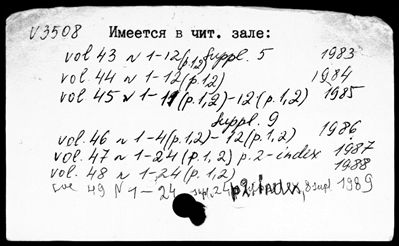 V3508 Имеется в чит. зале:
vol 43 N 1-12(p.1,2) Suppl. 5 1983
vol. 44 N 1-12(p.1,2) 1984
vol 45 N 1-11(p.1,2)-12(p.1,2) 1985
Suppl. 9
vol. 46 N 1-4(p.1,2)-12(p.1,2) 1986
vol. 47 N 1-24(p.1,2) p.2-index 1987
vol. 48 N 1-24(p.1,2) 1988
vol 49 N 1-24 p2index, 1989